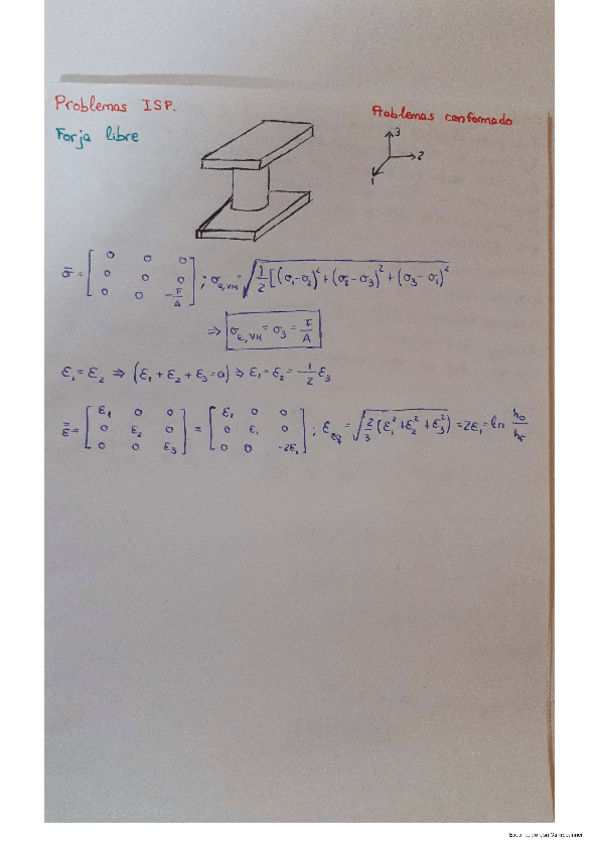 Problemas ISP.
Problemas conformado
Forja libre
3
2
1
σ̿ = [ 0 0 0 ; 0 0 0 ; 0 0 -F/A ] ; σ_e,VM = √(1/2 [(σ₁-σ₂)² + (σ₂-σ₃)² + (σ₃-σ₁)²
⇒ σ_e,VM = σ₃ = F/A
ε₁ = ε₂ ⇒ (ε₁ + ε₂ + ε₃ = 0) ⇒ ε₁ = ε₂ = -1/2 ε₃
ε̿ = [ ε₁ 0 0 ; 0 ε₂ 0 ; 0 0 ε₃ ] = [ ε₁ 0 0 ; 0 ε₁ 0 ; 0 0 -2ε₁ ] ; ε_eq = √(2/3 (ε₁² + ε₂² + ε₃²)) = 2ε₁ = ln h₀/h_f